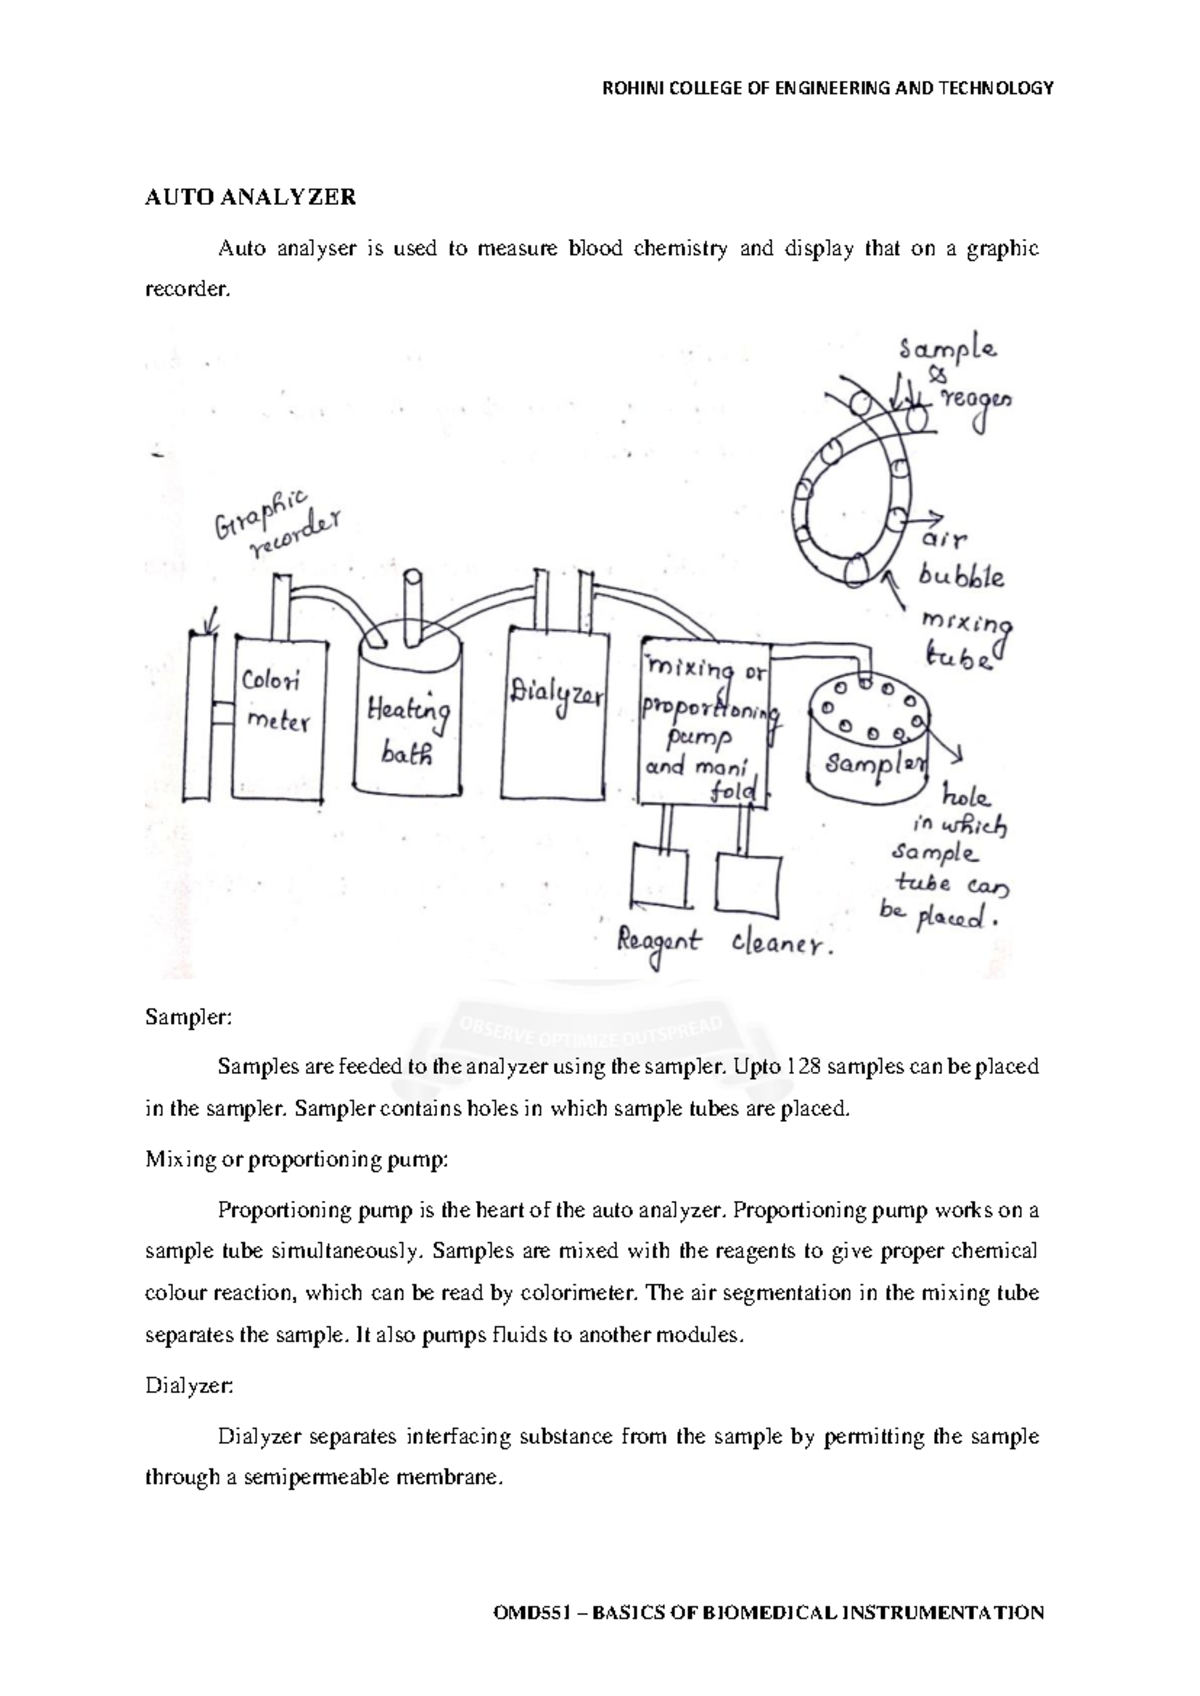 ROHINI COLLEGE OF ENGINEERING AND TECHNOLOGY
AUTO ANALYZER
Auto analyser is used to measure blood chemistry and display that on a graphic
recorder.
Sample
&
reagen
air
bubble
mixing
tube
Graphic
recorder
Colori
meter
Heating
bath
Dialyzer
mixing or
proportioning
pump
and mani
fold
Sampler
hole
in which
sample
tube can
be placed.
Reagent cleaner.
OBSERVE OPTIMIZE OUTSPREAD
Sampler:
Samples are feeded to the analyzer using the sampler. Upto 128 samples can be placed
in the sampler. Sampler contains holes in which sample tubes are placed.
Mixing or proportioning pump:
Proportioning pump is the heart of the auto analyzer. Proportioning pump works on a
sample tube simultaneously. Samples are mixed with the reagents to give proper chemical
colour reaction, which can be read by colorimeter. The air segmentation in the mixing tube
separates the sample. It also pumps fluids to another modules.
Dialyzer:
Dialyzer separates interfacing substance from the sample by permitting the sample
through a semipermeable membrane.
OMD551 – BASICS OF BIOMEDICAL INSTRUMENTATION